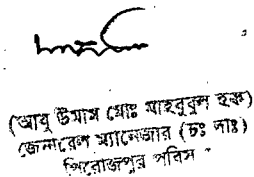 (আবু উমাম মোঃ মাহবুবুল হক)
জেনারেল ম্যানেজার (চঃ দাঃ)
পিরোজপুর পবিস